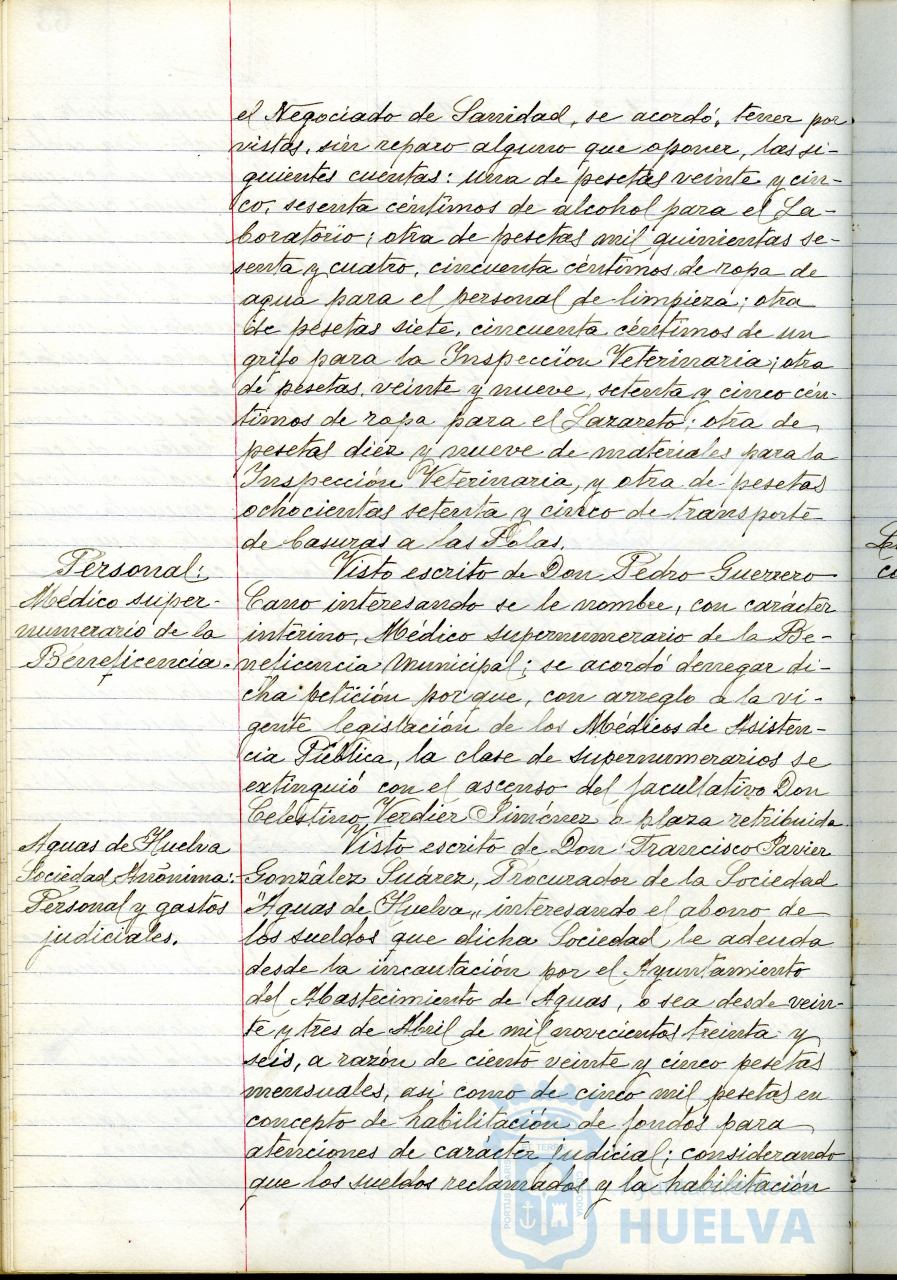 el Negociado de Sanidad, se acordó, tener por
vistas, sin reparo alguno que oponer, las si-
guientes cuentas: una de pesetas veinte y cin-
co, sesenta céntimos de alcohol para el La-
boratorio; otra de pesetas mil quinientas se-
senta y cuatro, cincuenta céntimos de ropa de
agua para el personal de limpieza; otra
de pesetas siete, cincuenta céntimos de un
grifo para la Inspección Veterinaria; otra
de pesetas veinte y nueve, setenta y cinco cén-
timos de ropa para el Lazareto; otra de
pesetas diez y nueve de materiales para la
Inspección Veterinaria, y otra de pesetas
ochocientas setenta y cinco de transporte
de basuras a las Tolas.
Personal:
Médico super-
numerario de la
Beneficencia.
Visto escrito de Don Pedro Guerrero
Cano interesando se le nombre, con carácter
interino, Médico supernumerario de la Be-
neficencia Municipal; se acordó denegar di-
cha petición porque, con arreglo a la vi-
gente legislación de los Médicos de Asisten-
cia Pública, la clase de supernumerarios se
extinguió con el ascenso del facultativo Don
Celestino Verdier Jiménez a plaza retribuida.
Aguas de Huelva
Sociedad Anónima:
Personal y gastos
judiciales.
Visto escrito de Don Francisco Javier
González Suárez, Procurador de la Sociedad
"Aguas de Huelva", interesando el abono de
los sueldos que dicha Sociedad le adeuda
desde la incautación por el Ayuntamiento
del Abastecimiento de Aguas, o sea desde vein-
te y tres de Abril de mil novecientos treinta y
seis, a razón de ciento veinte y cinco pesetas
mensuales, así como de cinco mil pesetas en
concepto de habilitación de fondos para
atenciones de carácter judicial; considerando
que los sueldos reclamados y la habilitación
HUELVA